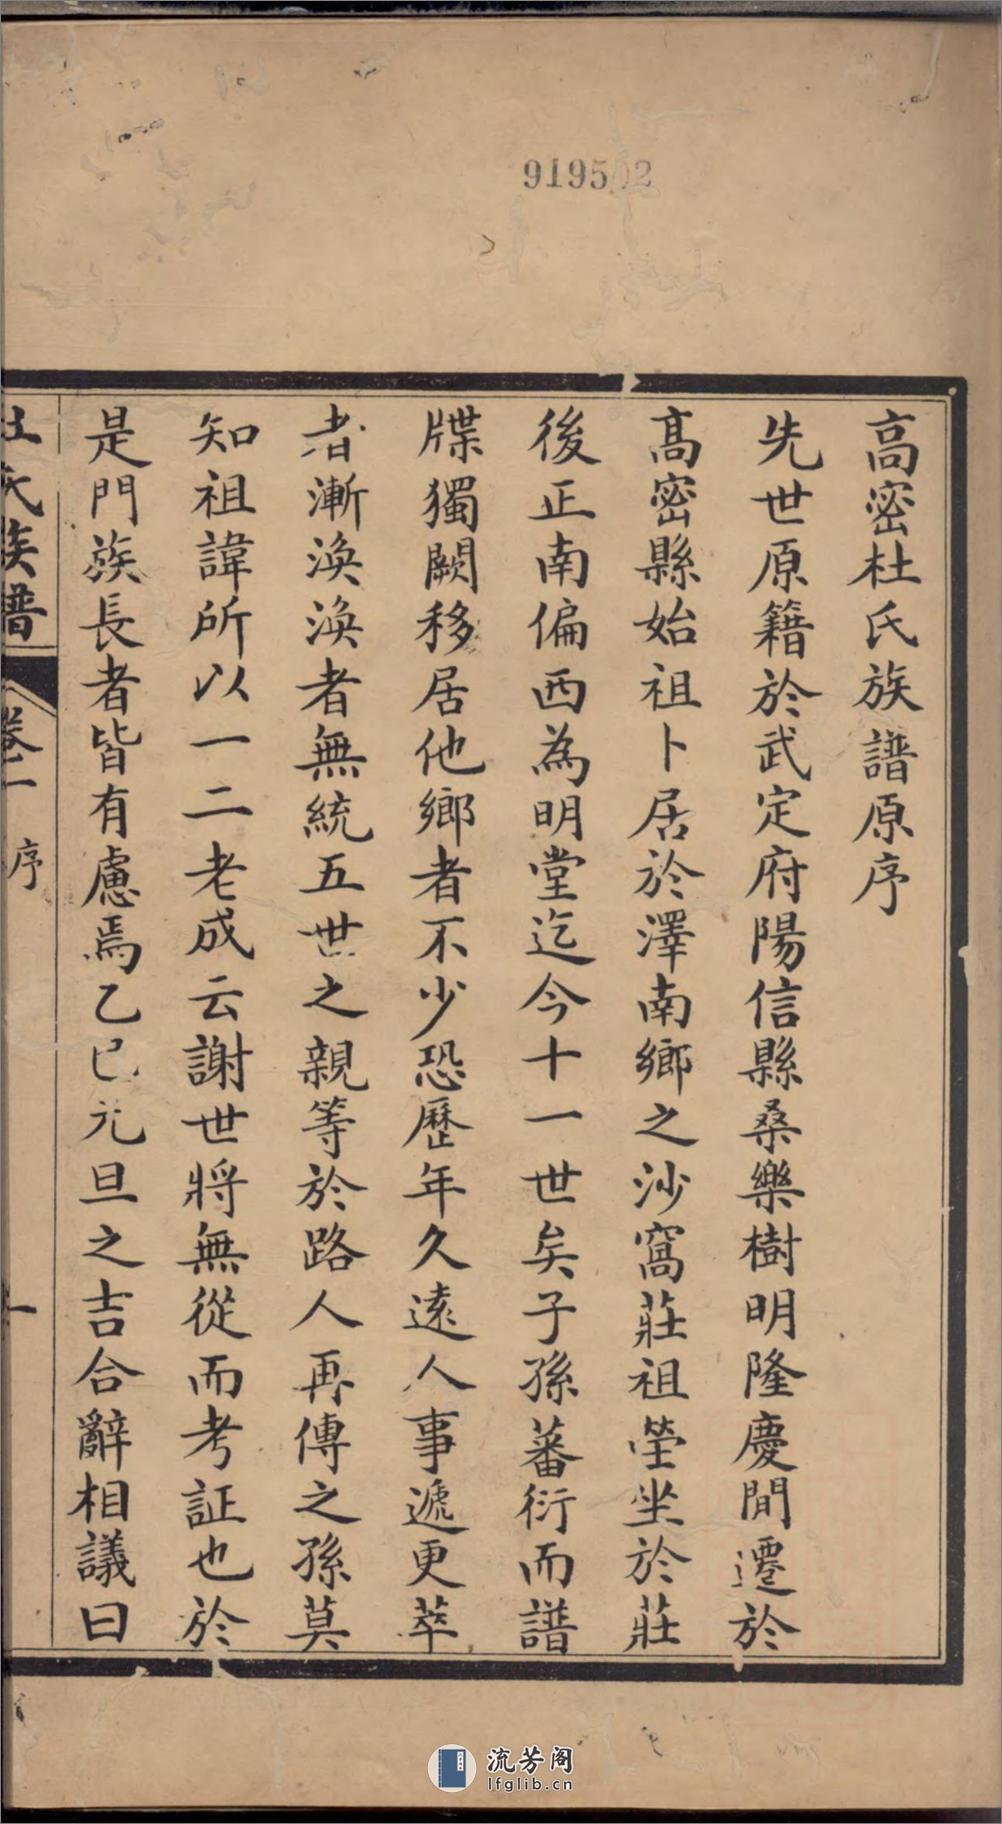 919502
高密杜氏族譜原序
先世原籍於武定府陽信縣桑樂樹明隆慶間遷於
高密縣始祖卜居於澤南鄉之沙窩莊祖塋坐於莊
後正南偏西為明堂迄今十一世矣子孫蕃衍而譜
牒獨闕移居他鄉者不少恐歷年久遠人事遞更萃
者漸渙渙者無統五世之親等於路人再傳之孫莫
知祖諱所以一二老成云謝世將無從而考証也於
是門族長者皆有慮焉乙巳元旦之吉合辭相議曰
杜氏族譜 卷一 序 一
流芳阁
lfglib.cn